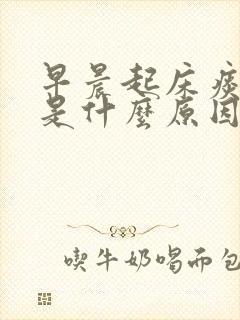 早晨起床痰
是什麼原因
喫牛奶喝面包